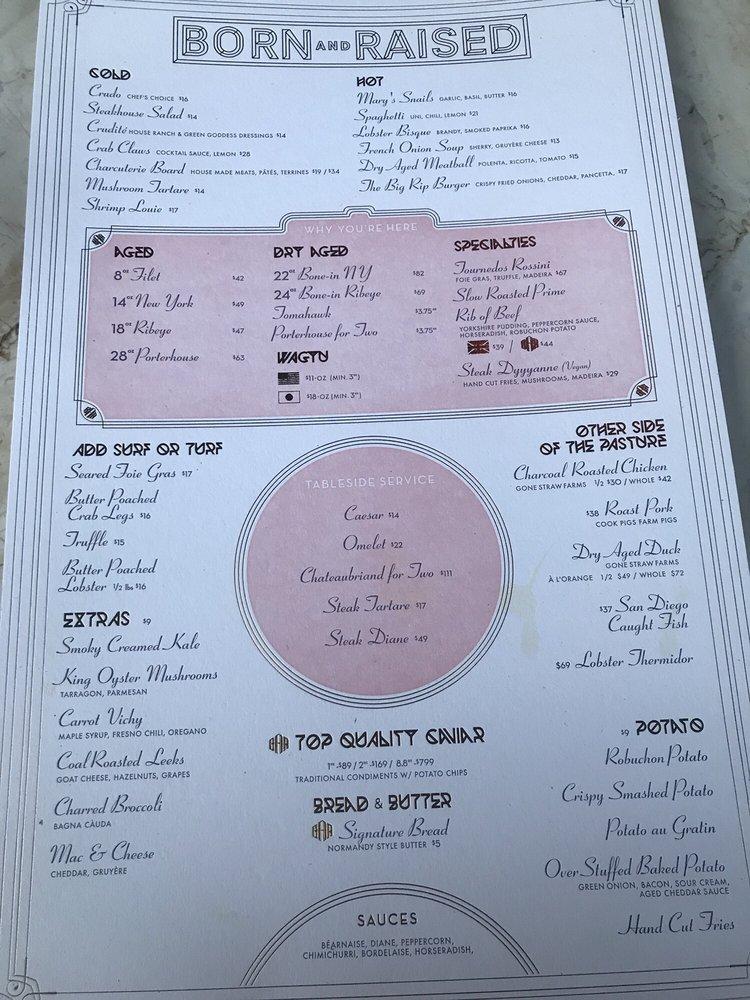 BORN AND RAISED
COLD
Crudo CHEF'S CHOICE $16
Steakhouse Salad $14
Crudité HOUSE RANCH & GREEN GODDESS DRESSINGS $14
Crab Claws COCKTAIL SAUCE, LEMON $28
Charcuterie Board HOUSE MADE MEATS, PÂTÉS, TERRINES $19 / $34
Mushroom Tartare $14
Shrimp Louie $17
HOT
Mary's Snails GARLIC, BASIL, BUTTER $16
Spaghetti UNI, CHILI, LEMON $21
Lobster Bisque BRANDY, SMOKED PAPRIKA $16
French Onion Soup SHERRY, GRUYÈRE CHEESE $13
Dry Aged Meatball POLENTA, RICOTTA, TOMATO $15
The Big Rip Burger CRISPY FRIED ONIONS, CHEDDAR, PANCETTA, $17
WHY YOU'RE HERE
AGED
8oz Filet $42
14oz New York $49
18oz Ribeye $47
28oz Porterhouse $63
DRY AGED
22oz Bone-in NY $82
24oz Bone-in Ribeye $69
Tomahawk $3.75oz
Porterhouse for Two $3.75oz
WAGYU
$11-OZ (MIN. 3oz)
$18-OZ (MIN. 3oz)
SPECIALTIES
Tournedos Rossini
FOIE GRAS, TRUFFLE, MADEIRA $67
Slow Roasted Prime
Rib of Beef
YORKSHIRE PUDDING, PEPPERCORN SAUCE,
HORSERADISH, ROBUCHON POTATO
$39 / BAR $44
Steak Dyyyanne (Vegan)
HAND CUT FRIES, MUSHROOMS, MADEIRA $29
ADD SURF OR TURF
Seared Foie Gras $17
Butter Poached
Crab Legs $16
Truffle $15
Butter Poached
Lobster 1/2 lbs $16
EXTRAS $9
Smoky Creamed Kale
King Oyster Mushrooms
TARRAGON, PARMESAN
Carrot Vichy
MAPLE SYRUP, FRESNO CHILI, OREGANO
Coal Roasted Leeks
GOAT CHEESE, HAZELNUTS, GRAPES
Charred Broccoli
BAGNA CÀUDA
Mac & Cheese
CHEDDAR, GRUYÈRE
TABLESIDE SERVICE
Caesar $14
Omelet $22
Chateaubriand for Two $111
Steak Tartare $17
Steak Diane $49
BAR TOP QUALITY CAVIAR
1oz -$89 / 2oz -$169 / 8.8oz -$799
TRADITIONAL CONDIMENTS W/ POTATO CHIPS
BREAD & BUTTER
BAR Signature Bread
NORMANDY STYLE BUTTER $5
SAUCES
BÉARNAISE, DIANE, PEPPERCORN,
CHIMICHURRI, BORDELAISE, HORSERADISH,
OTHER SIDE
OF THE PASTURE
Charcoal Roasted Chicken
GONE STRAW FARMS 1/2 $30 / WHOLE $42
$38 Roast Pork
COOK PIGS FARM PIGS
Dry Aged Duck
GONE STRAW FARMS
À L'ORANGE 1/2 $49 / WHOLE $72
$37 San Diego
Caught Fish
$69 Lobster Thermidor
$9 POTATO
Robuchon Potato
Crispy Smashed Potato
Potato au Gratin
Over Stuffed Baked Potato
GREEN ONION, BACON, SOUR CREAM,
AGED CHEDDAR SAUCE
Hand Cut Fries